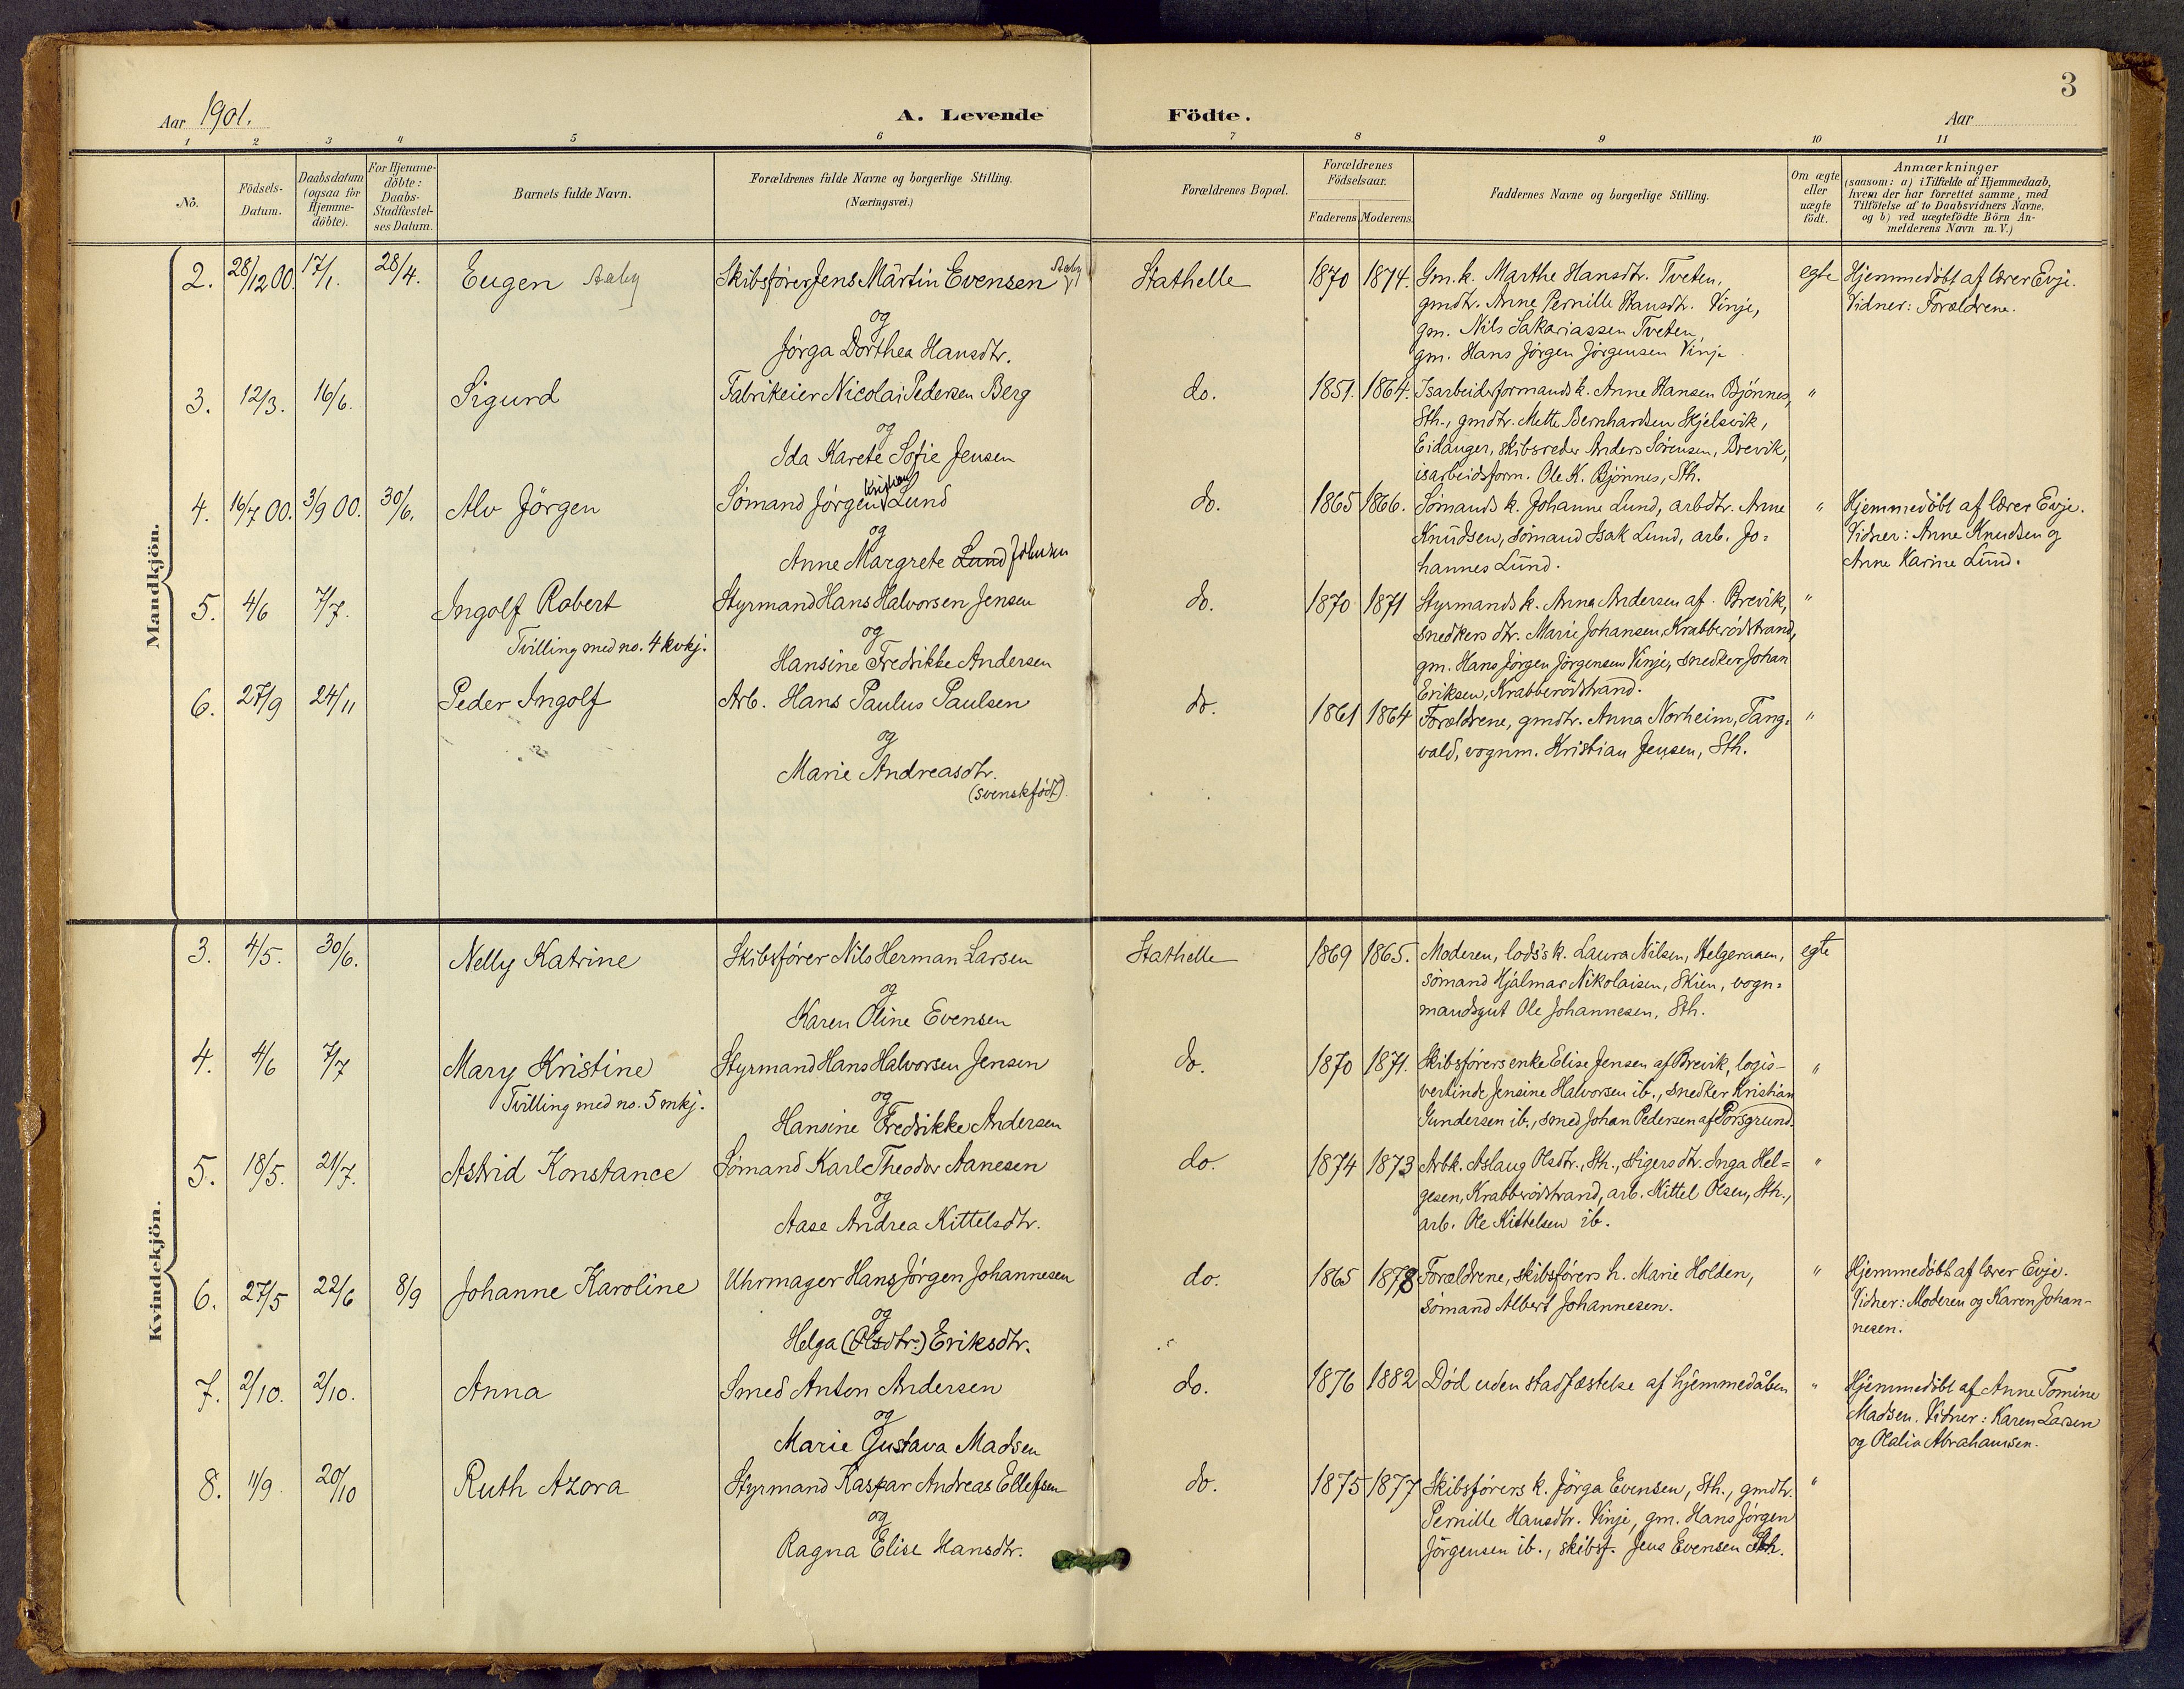 3
Aar 1901.
A. Levende Födte.
Aar
1 2 3 4 5 6 7 8 9 10 11
No.
Födsels-
Datum.
Daabsdatum
(ogsaa for
Hjemme-
döbte).
For Hjemme-
döbte:
Daabs-
Stadfæstel-
ses Datum.
Barnets fulde Navn.
Forældrenes fulde Navne og borgerlige Stilling.
(Næringsvei.)
Forældrenes Bopæl.
Forældrenes
Födselsaar.
Faderens Moderens.
Faddernes Navne og borgerlige Stilling.
Om ægte
eller
uægte
födt.
Anmærkninger
(saasom: a) i Tilfælde af Hjemmedaab,
hvem der har forrettet samme, med
Tilföielse af to Daabsvidners Navne,
og b) ved uægtefödte Börn An-
melderens Navn m. V.)
Mandkjön.
2. 28/12 00. 17/1. 28/4. Eugen Aaby
Skibsfører Jens Martin Evensen Aaby
og
Jørga Dorthea Hansdtr.
Stathelle 1870 1874.
Gm. k. Marthe Hansdtr. Tveten,
gmdtr. Anne Pernille Hansdtr. Vinje,
gm. Nils Sakariassen Tveten,
gm. Hans Jörgen Jörgensen Vinje.
egte
Hjemmedöbt af lærer Evje.
Vidner: Forældrene.
3. 12/3. 16/6. Sigurd
Fabrikeier Nicolai Pedersen Berg
og
Ida Karete Sofie Jensen
do. 1851. 1864.
Isarbeidsformands k. Anne Hansen Bjönnes,
Sth., gmdtr. Mette Bernhardsen Skjelsvik,
Eidanger, skibsreder Anders Sörensen, Brevik,
isarbeidsform. Ole K. Bjönnes, Sth.
"
4. 16/7 00. 3/9 00. 30/6. Alv Jörgen
Sømand Jörgen Kristian Lund
og
Anne Margrete Lund Johnsen
do. 1865 1866.
Sømands k. Johanne Lund, arbdtr. Anne
Knudsen, sömand Isak Lund, arb. Jo=
hannes Lund.
"
Hjemmedöbt af lærer Evje.
Vidner: Anne Knudsen og
Anne Karine Lund.
5. 4/6 7/7. Ingolf Robert
Tvilling med no. 4 kvkj.
Styrmand Hans Halvorsen Jensen
og
Hansine Fredrikke Andersen
do. 1870 1871
Styrmands k. Anna Andersen af Brevik,
snedkers dtr. Marie Johansen, Krabberödstrand,
gm. Hans Jörgen Jörgensen Vinje, snedker Johan
Eriksen, Krabberödstrand.
"
6. 27/9 24/11 Peder Ingolf
Arb. Hans Paulus Paulsen
og
Marie Andreasdtr.
(svenskfödt).
do. 1861 1864
Forældrene, gmdtr. Anna Norheim, Tang=
vald, vognm. Kristian Jensen, Sth.
"
Kvindekjön.
3. 4/5. 30/6. Nelly Katrine
Skibsfører Nils Herman Larsen
og
Karen Oline Evensen
Stathelle 1869 1865.
Moderen, lods's k. Laura Nilsen, Helgeraaen,
sömand Hjalmar Nikolaisen, Skien, vogn=
mandsgut Ole Johannesen, Sth.
egte
4. 4/6 7/7 Mary Kristine
Tvilling med no. 5 mkj.
Styrmand Hans Halvorsen Jensen
og
Hansine Fredrikke Andersen
do. 1870 1871.
Skibsførers enke Elise Jensen af Brevik, logis-
vertinde Jensine Halvorsen ib., snedker Kristian
Gundersen ib., smed Johan Pedersen af Porsgrund.
"
5. 18/5. 21/7. Astrid Konstance
Sømand Karl Theodor Aanesen
og
Aase Andrea Kittelsdtr.
do. 1874 1873
Arbk. Aslaug Olsdtr., Sth., stigers dtr. Inga Hel=
gesen, Krabberödstrand, arb. Kittel Olsen, Sth.,
arb. Ole Kittelsen ib.
"
6. 27/5 22/6 8/9 Johanne Karoline
Uhrmager Hans Jörgen Johannesen
og
Helga (Olsdtr.) Eriksdtr.
do. 1865 1878
Forældrene, skibsførers h. Marie Holden,
sömand Albert Johannesen.
"
Hjemmedöbt af lærer Evje.
Vidner: Moderen og Karen Johan-
nesen.
7. 2/10. 2/10. Anna
Smed Anton Andersen
og
Marie Gustava Madsen
do. 1876 1882
Död uden stadfæstelse af hjemmedåben
"
Hjemmedöbt af Anne Tomine
Madsen. Vidner: Karen Larsen
og Olalia Abrahamsen.
8. 11/9. 20/10 Ruth Azora
Styrmand Kaspar Andreas Ellefsen
og
Ragna Elise Hansdtr.
do. 1875 1877
Skibsførers k. Jörga Evensen, Sth., gmdtr.
Pernille Hansdtr. Vinje, gm. Hans Jörgen
Jörgensen ib., skibsf. Jens Evensen Sth.
"